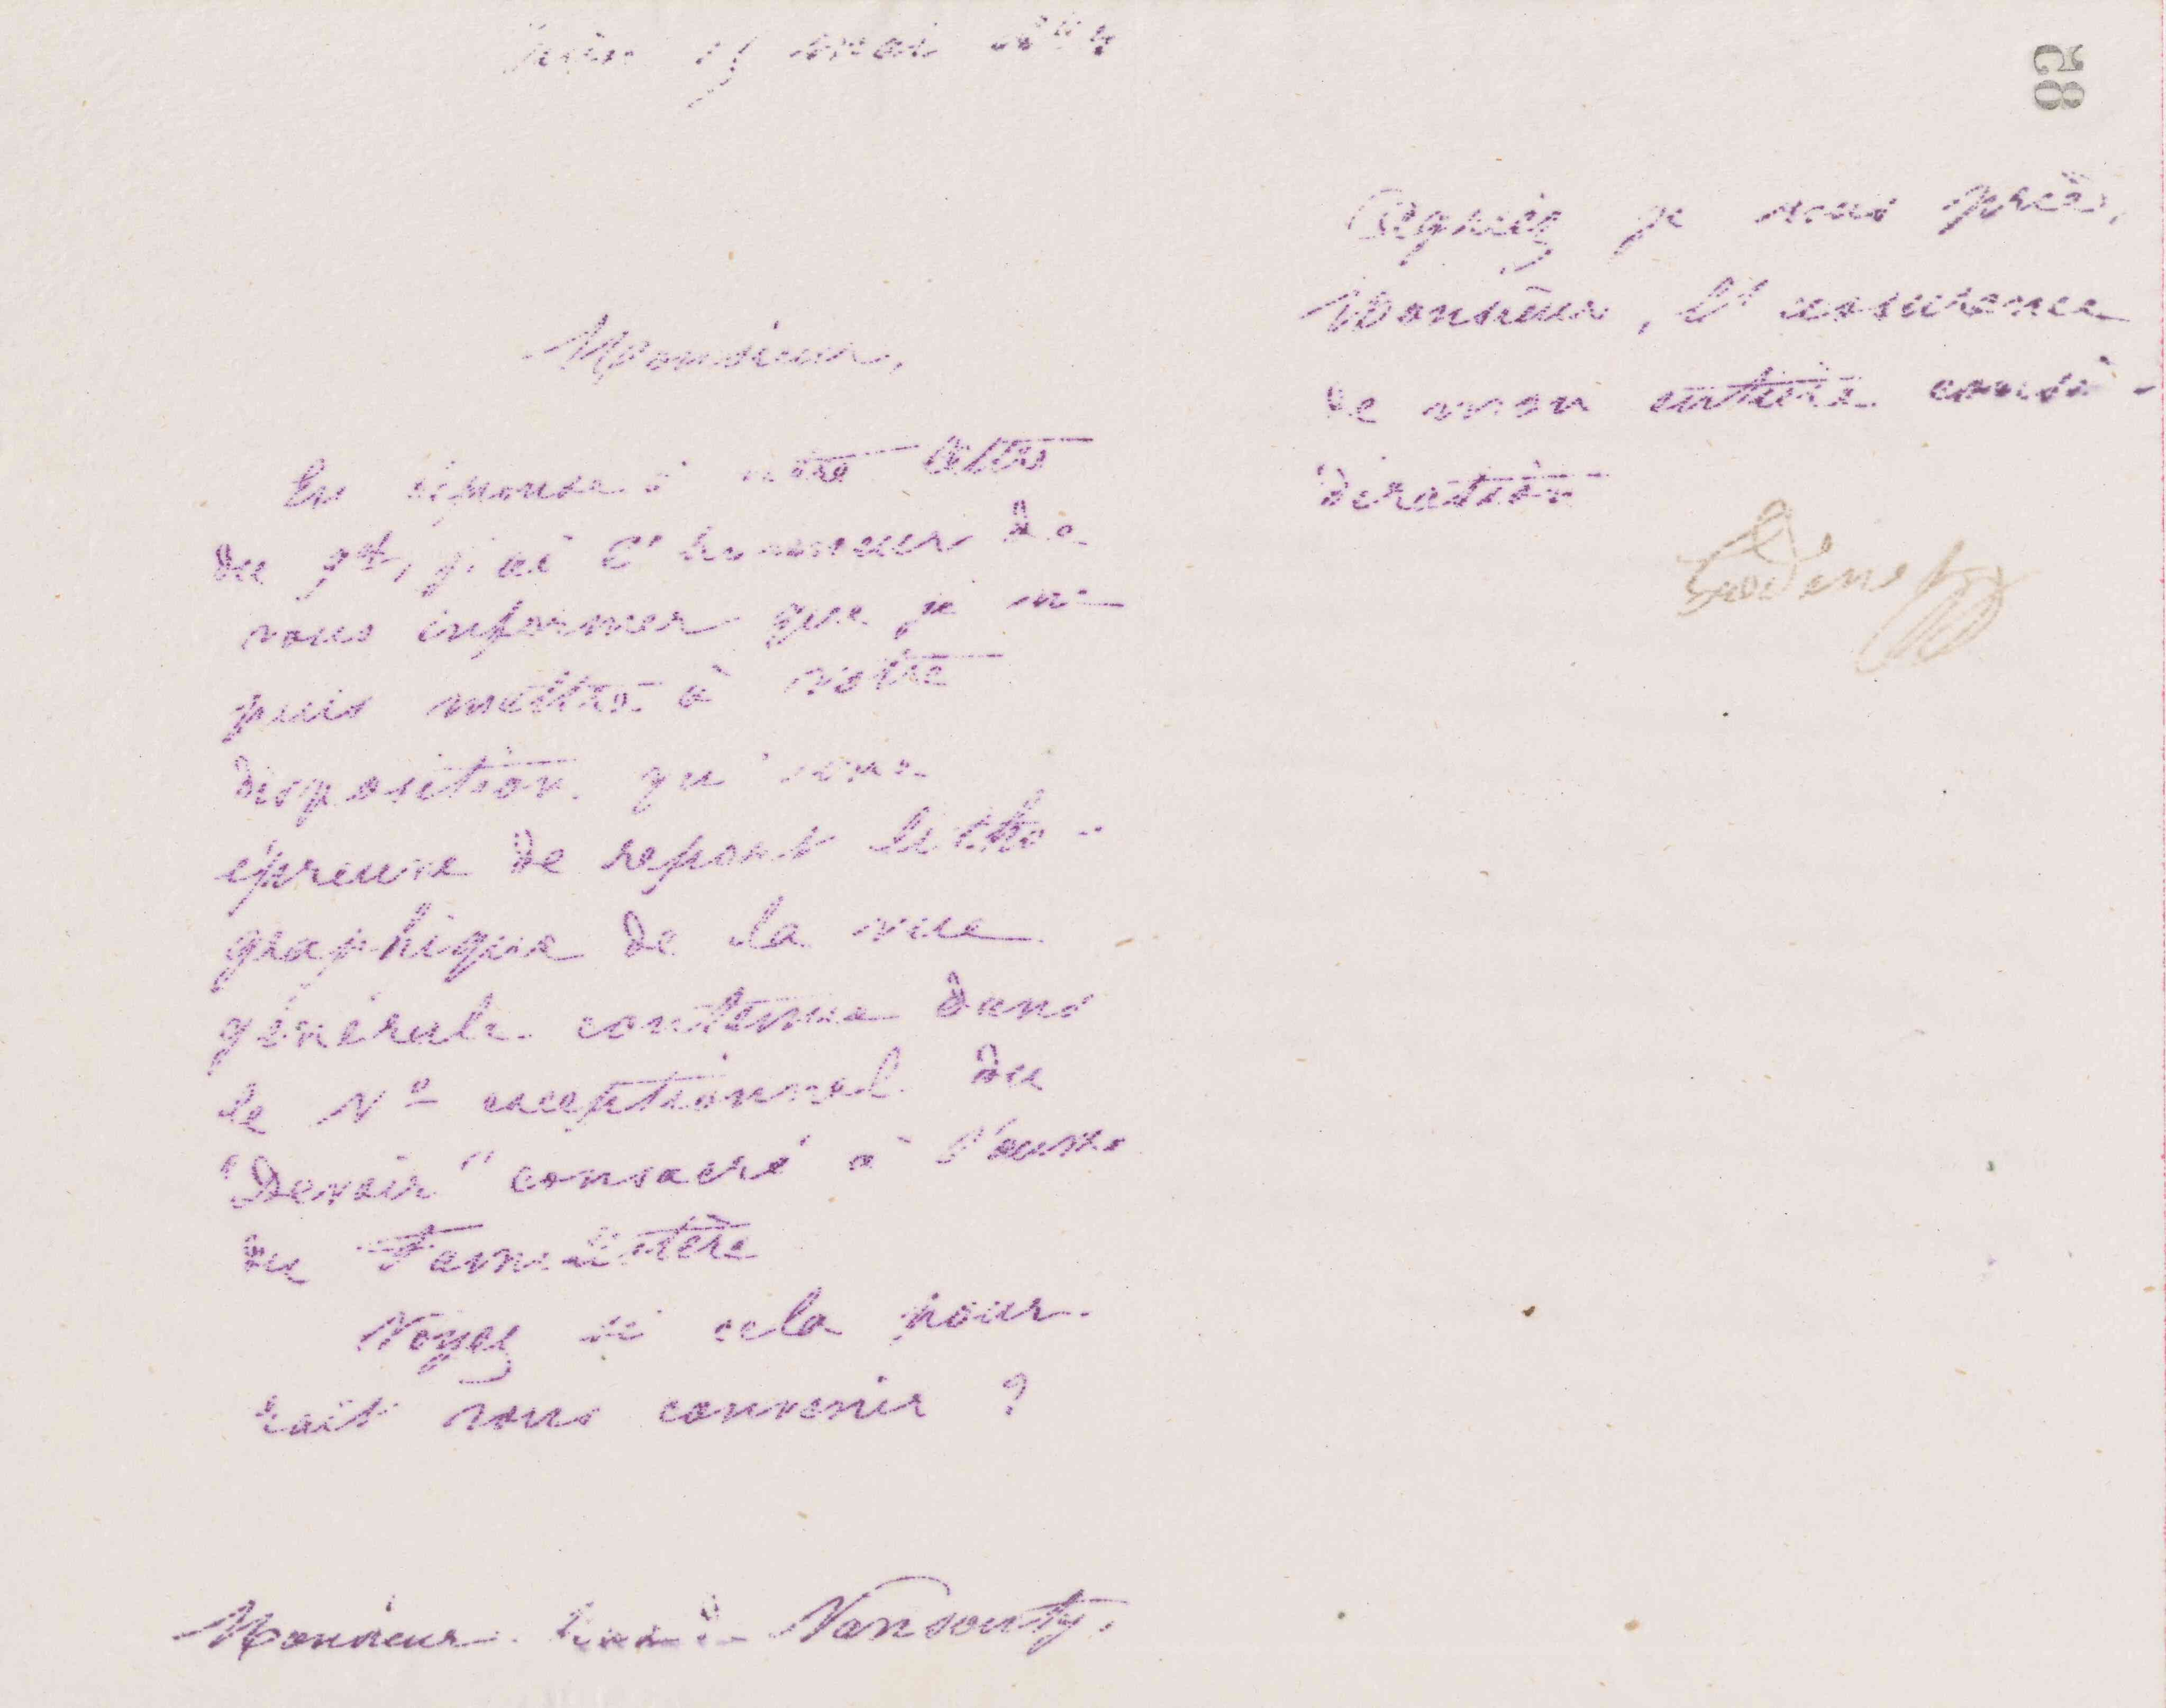 mai
Monsieur,
En réponse à votre lettre
du 9 ct, j'ai l'honneur de
vous informer que je ne
puis mettre à votre
disposition qu'une
épreuve de report litho-
graphique de la vue
générale contenue dans
le No exceptionnel du
"Devoir" consacré à l'œuvre
du Familistère
Voyez si cela pour-
rait vous convenir ?
Monsieur de Nansouty.
85
Agréez je vous prie,
Monsieur, l'assurance
de mon entière consi-
dération